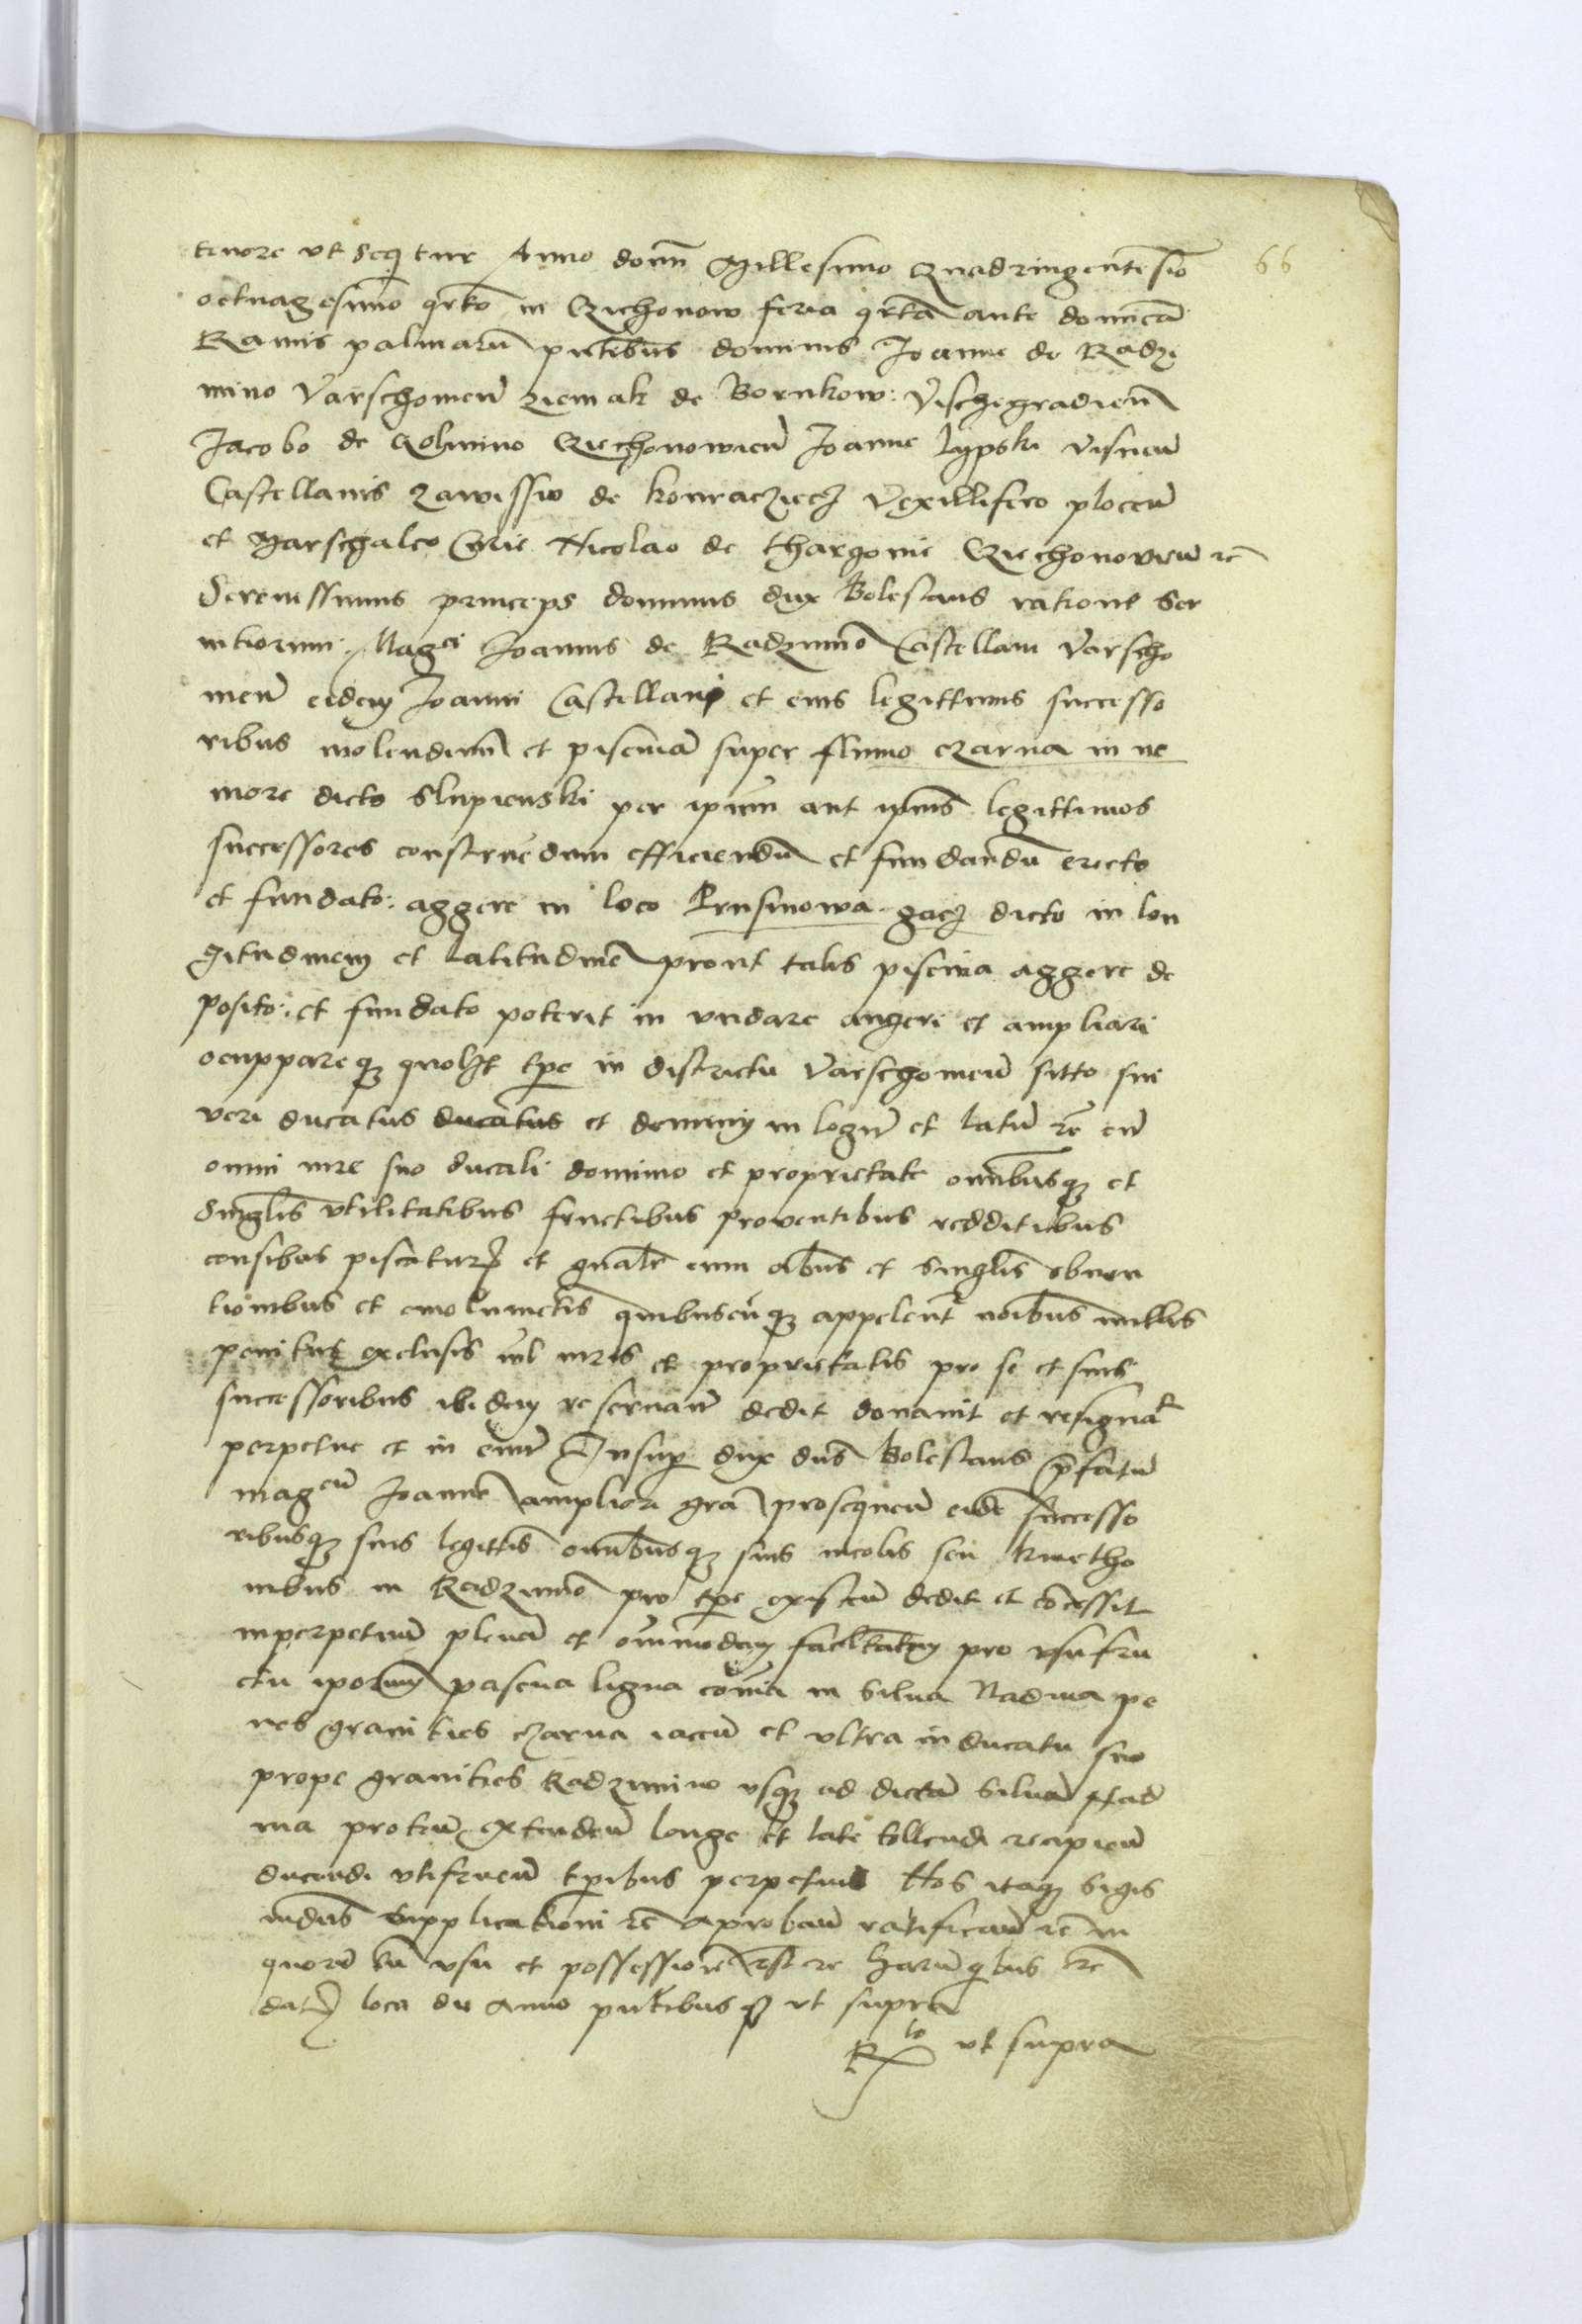 tenore ut seqtur Anno domi Millesimo Quadringentesio 66
octuagesimo qrto in Cziechonow feria qrta ante dominca
Ramis palmaru pntibus dominis Joanne de Radzi
mino Varschomen Ziemak de Bornkow: Vischegradien
Jacobo de Golmino Cziechonowien Joanne Lypski Visnen
Castellanis Zawissio de konracziecz Vexillifero plocen
et Marschalco Curie Nicolao de thargonie Cziechonovien rc
Serenissimus princeps dominus dux Boleslaus ratione ser
vitiorum Magci Joannis de Radzimino Castellani Varscho
men eidem Joanni Castellano et eius legittimis successo
ribus molendinu et piscina super fluuio czarna in ne
more dicto Slupienski per ipsum aut ipius legittimos
successores construedum efficiendu et fundandu erecto
et fundato: aggere in loco Prusinowa gacz dicto in lon
gitudinem et latitudine prout talis piscina aggere de
posito: et fundato poterit in undare augeri et ampliari
ocuppareq quolzt tpe in districtu Varschomen sitto sui
veri ducatus ducatus et dominy in logu et latu rc cu
omni iure suo ducali dominio et proprietate omnibusq et
singlis utilitatibus fructibus proventibus redditibus
consibus piscaturis et gnale cum oibus et singlis obuen
tionibus et emolumetis quibuscuq appelentr noibus nullis
penitus exclusis nl iuris et proprietatis pro se et suis
successoribus ibidem reseruan dedit donauit et resignat
perpetue et in euu Insup dux dns Boleslaus pfatu
magcu Joanne ampliori gra prosequen eide successo
ribusq suis legittis omnibusq suis incolis seu kmetho
nibus in Radzimino pro tpe existen dedit et cocessit
inperpetuu plena et omnimodam facltatem pro usufru
ctu iporum pascua ligna conia in silua Nadma pe
nes granities czarna iacen et ultra in ducatu suo
prope granities Radzimino usq ad dicta siluam Nad
ma proten extenden longe et late tollendi recipien
ducendi utifruen tpribus perpetuis Nos itaq Sigis
mdus supplicationi rc aproban ratifican rc in
quoru tu usu et possessione est rc Harum qbus rc
dat loca die anno pntibus q ut supra
Rlo ut supra